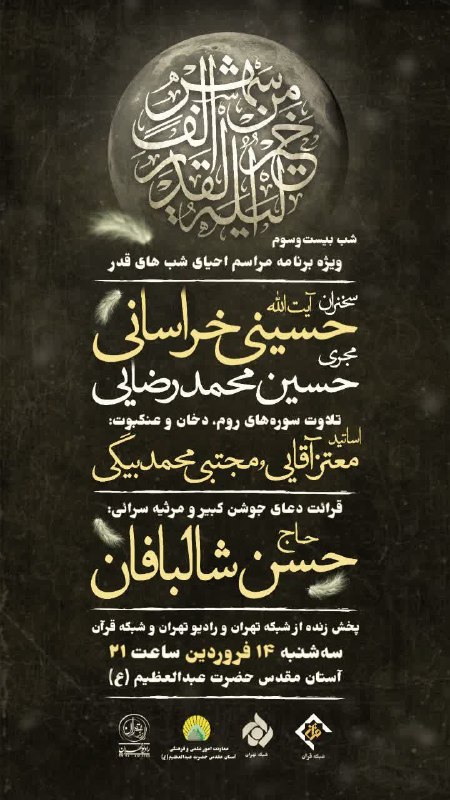 لیلة القدر خیر من الف شهر
شب بیست‌وسوم
ویژه برنامه مراسم احیای شب های قدر
سخنران آیت الله
حسینی خراسانی
مجری
حسین محمدرضایی
تلاوت سوره‌های روم، دخان و عنکبوت:
اساتید
معتز آقایی و مجتبی محمدبیگی
قرائت دعای جوشن کبیر و مرثیه سرائی:
حاج
حسن شالبافان
پخش زنده از شبکه تهران و رادیو تهران و شبکه قرآن
سه‌شنبه ۱۴ فروردین ساعت ۲۱
آستان مقدس حضرت عبدالعظیم (ع)
شبکه قرآن
شبکه تهران
معاونت امور علمی و فرهنگی
آستان مقدس حضرت عبدالعظیم (ع)